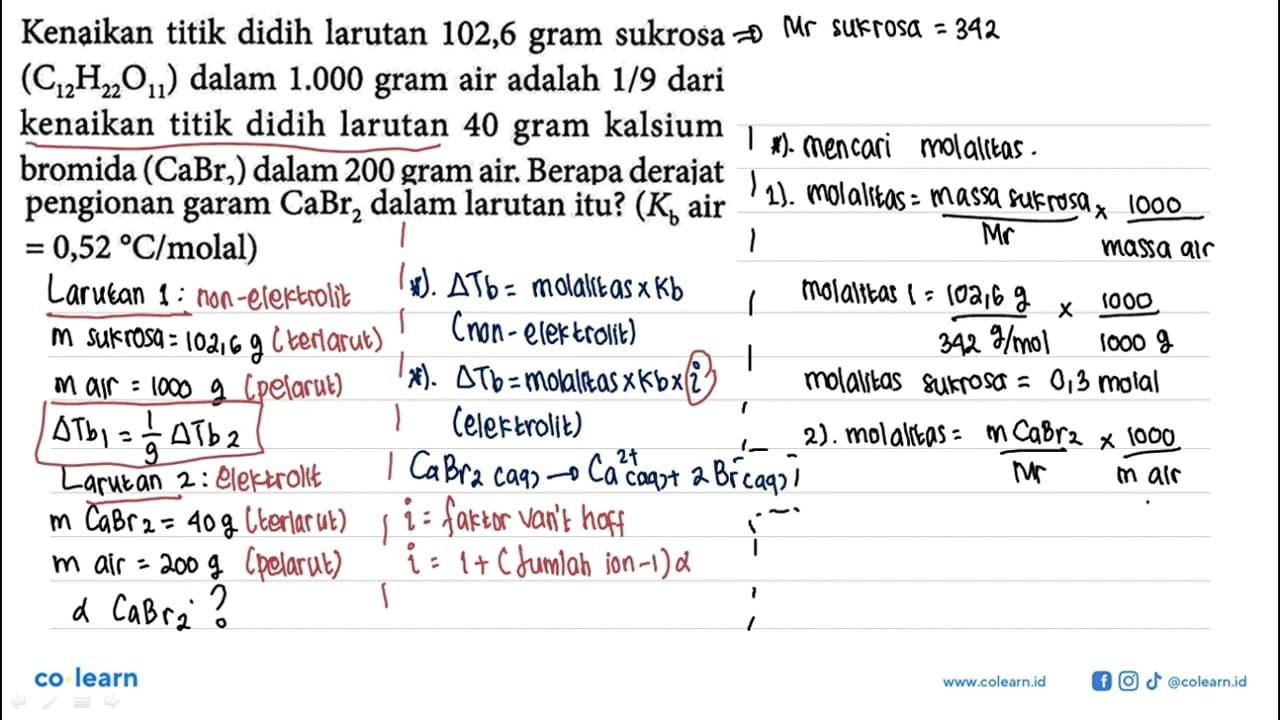 Kenaikan titik didih larutan 102,6 gram sukrosa ⇒ Mr sukrosa = 342
(C₁₂H₂₂O₁₁) dalam 1.000 gram air adalah 1/9 dari
kenaikan titik didih larutan 40 gram kalsium
bromida (CaBr₂) dalam 200 gram air. Berapa derajat
pengionan garam CaBr₂ dalam larutan itu? (K_b air
= 0,52 °C/molal)
Larutan 1 : non-elektrolit
m sukrosa = 102,6 g (terlarut)
m air = 1000 g (pelarut)
ΔTb₁ = 1/9 ΔTb₂
Larutan 2 : elektrolit
m CaBr₂ = 40 g (terlarut)
m air = 200 g (pelarut)
α CaBr₂ ?
*). ΔTb = molalitas x Kb
(non-elektrolit)
*). ΔTb = molalitas x Kb x i
(elektrolit)
CaBr₂ (aq) → Ca²⁺(aq) + 2 Br⁻(aq)
i = faktor van't hoff
i = 1 + (Jumlah ion-1)α
*). mencari molalitas.
1). molalitas = massa sukrosa/Mr x 1000/massa air
molalitas 1 = 102,6 g/342 g/mol x 1000/1000 g
molalitas sukrosa = 0,3 molal
2). molalitas = m CaBr₂/Mr x 1000/m air
co learn
www.colearn.id
@colearn.id